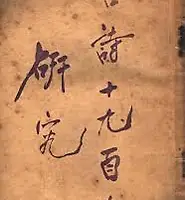 詩十九首
研究